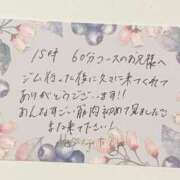 15時 60分コースのお兄様へ
ジム行った後に久々に来てくれて
ありがとうございます!!
あんなすごい筋肉初めて見ました
また来て下さい